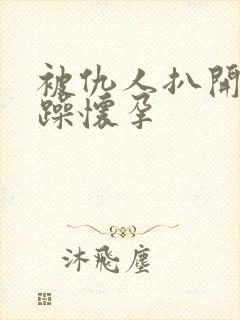 被仇人扒开
躁怀孕
沐飛塵